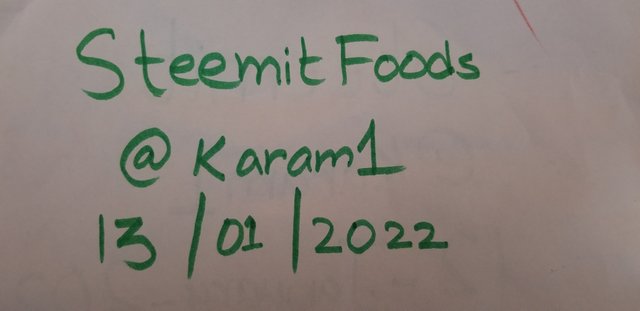 Steemit Foods
@Karam1
13/01/2022